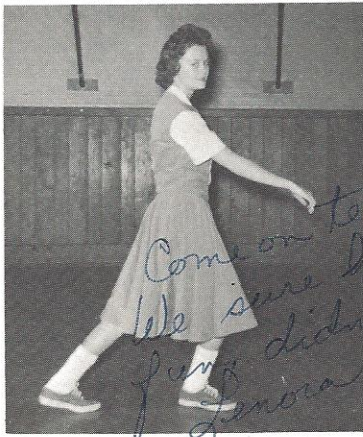 Come on te
We sure h
fun didn
Lenora